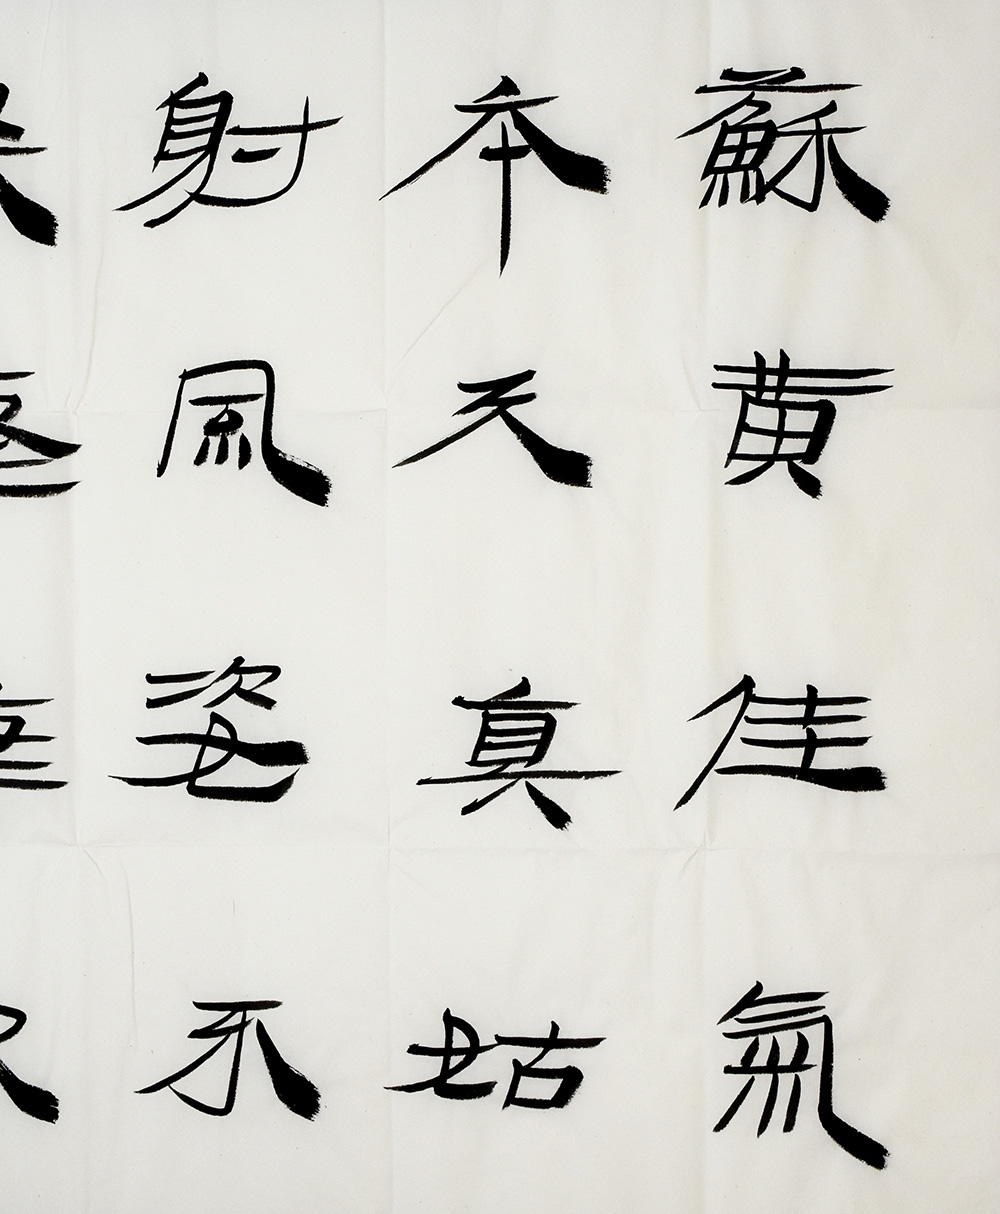 蘇黄佳氣
本天真姑
射風姿不